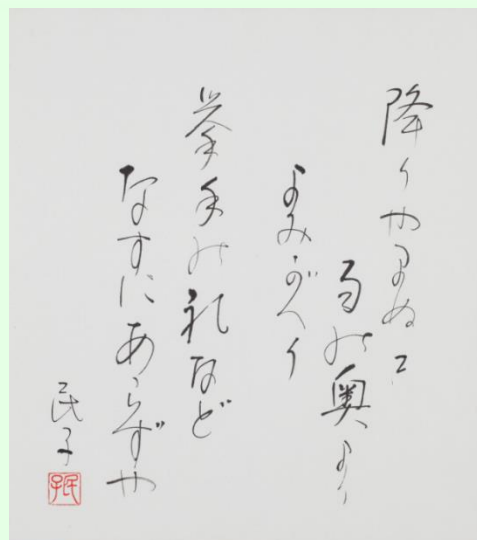 降りやまぬ
雨の奥より
よみがへり
挙手の礼など
なすにあらずや
民子